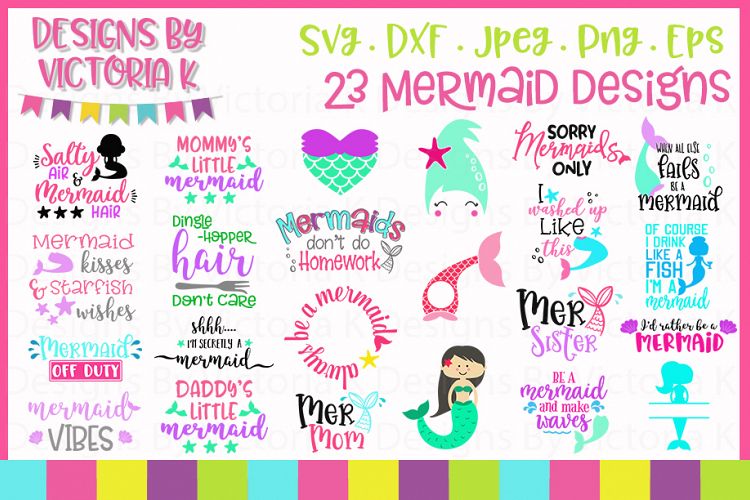 DESIGNS BY
VICTORIA K
SVG . DXF . JPEG . PNG . EPS
23 MERMAID DESIGNS
Salty
AIR
&
Mermaid
HAIR
MOMMY'S
LITTLE
mermaid
SORRY
Mermaids
ONLY
WHEN ALL ELSE
FAILS
BE A
MERMAID
Mermaid
kisses
& STARFISH
wishes
Dingle
-HOPPER
hair
DON'T CARE
MERMAIDS
DON'T DO
HOMEWORK
I
washed up
LIKE
this
OF COURSE
I DRINK
LIKE A
FISH
I'M A
mermaid
MERMAID
OFF DUTY
shhh....
I'M SECRETLY A
mermaid
always be a mermaid
MER
SISTER
I'd rather be a
MERMAID
mermaid
VIBES
DADDY'S
LITTLE
mermaid
MER
MOM
BE A
mermaid
and make
waves
Designs By Victoria K